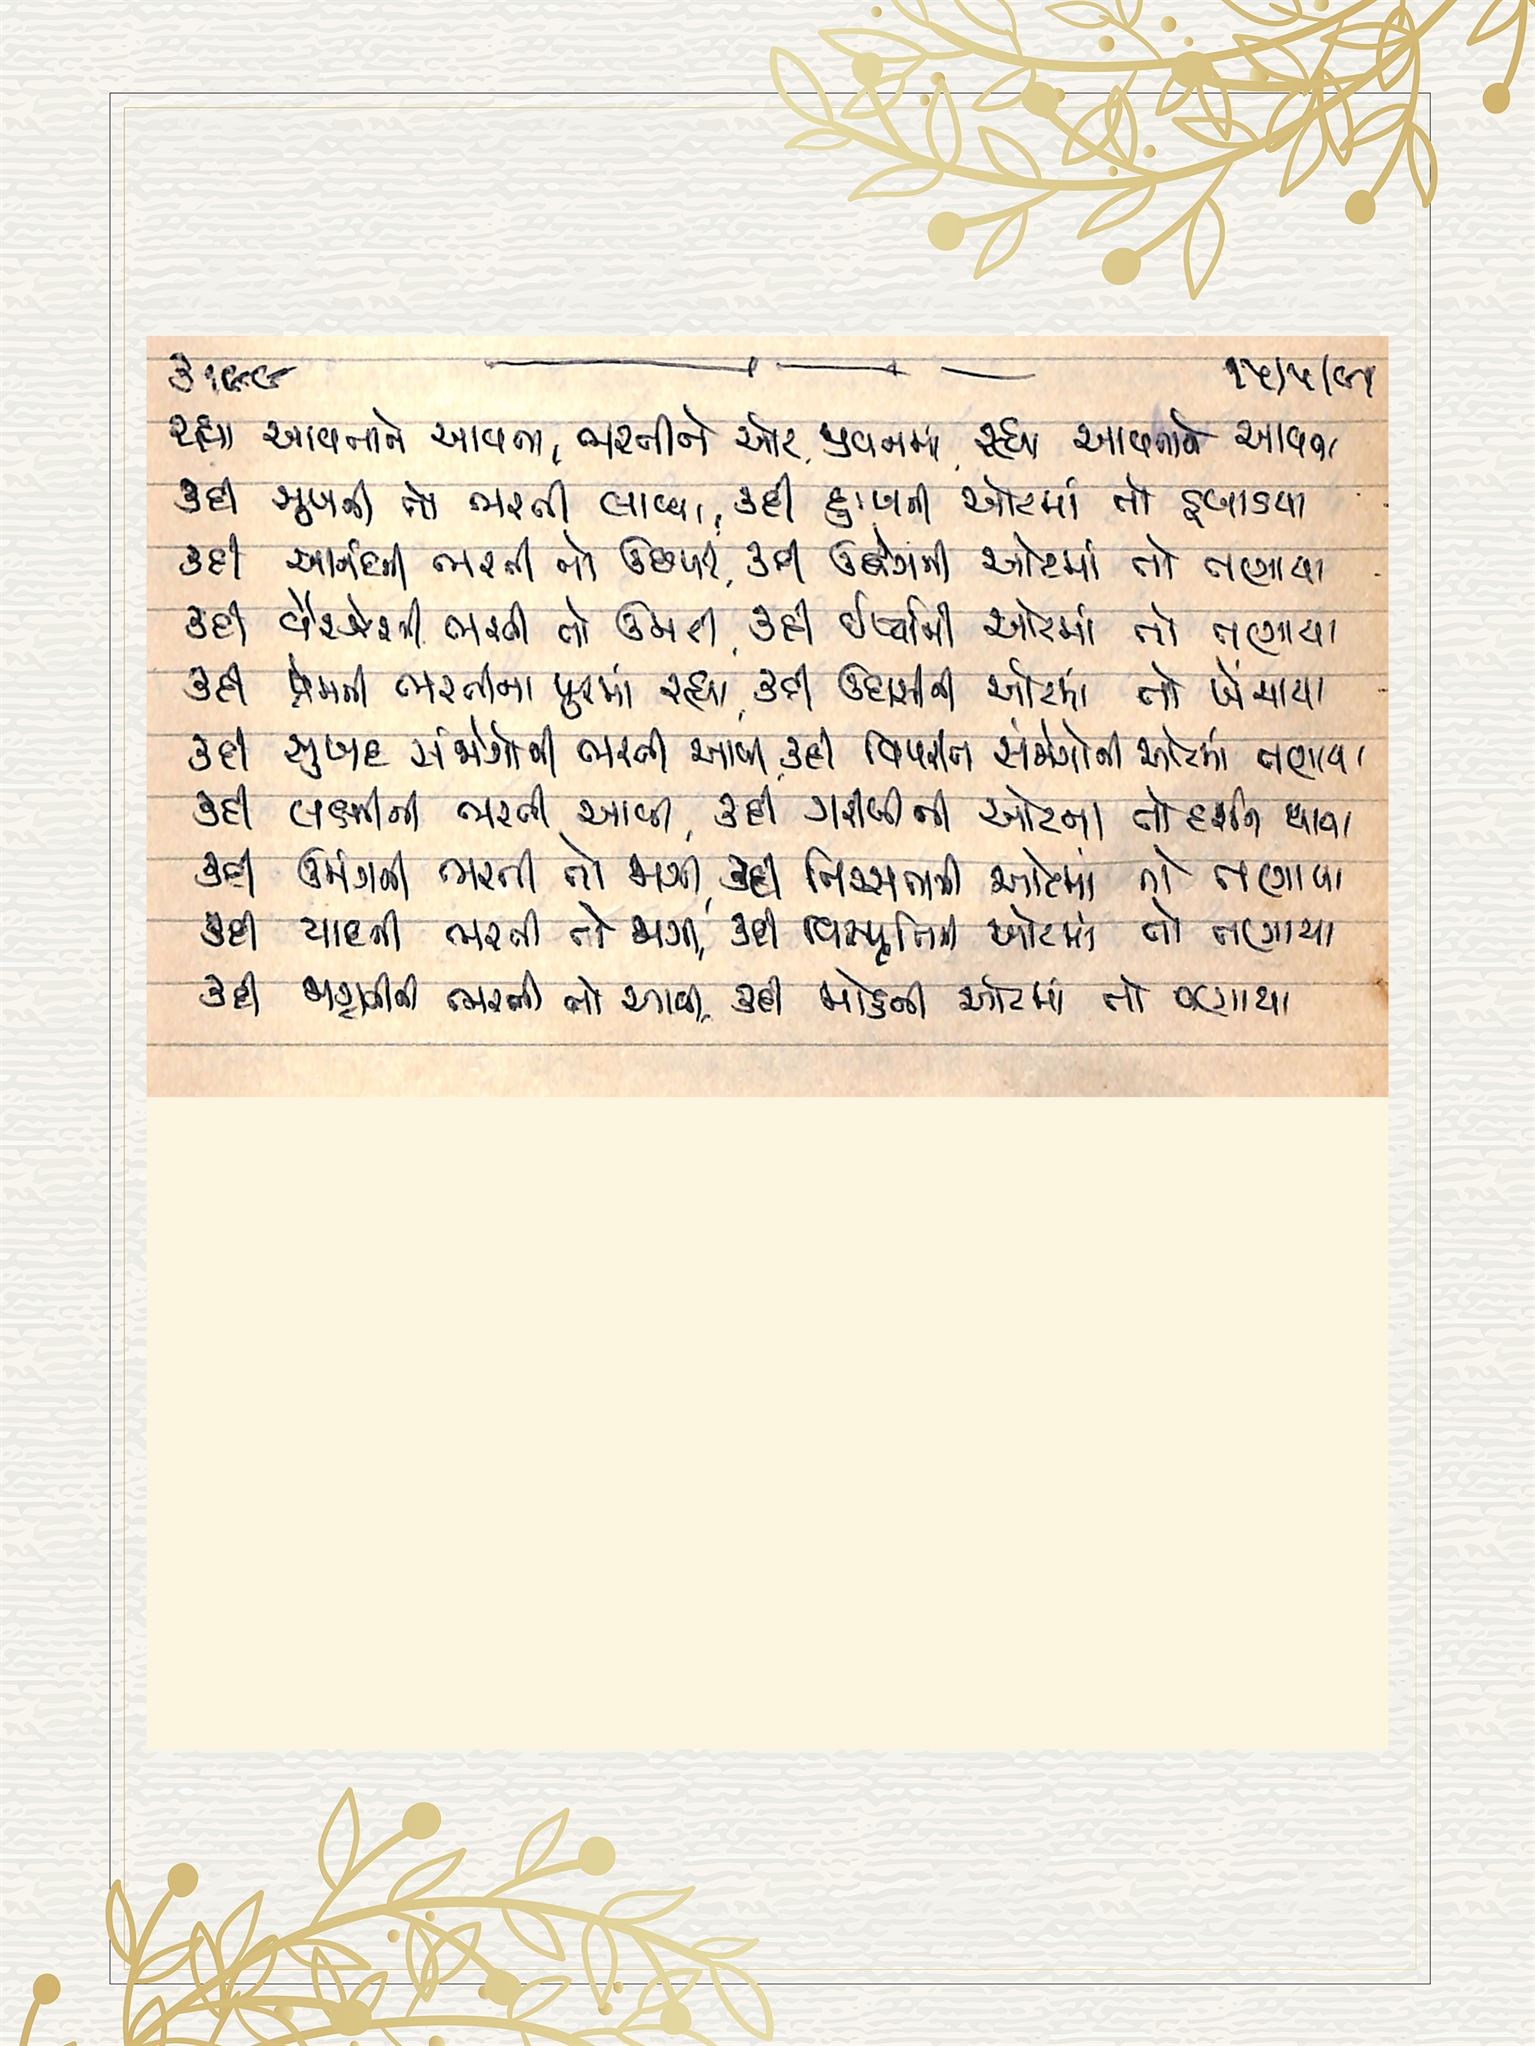 ૩૧૯૯ ૨૫/૫/૯૧
રહ્યા આવતાને આવતા, ભરતીને ઓટ, જીવનમાં, રહ્યા આવતાને આવતા
કદી સુખની તો ભરતી લાવ્યા, કદી દુઃખની ઓટમાં તો ડુબાડયા
કદી આનંદની ભરતી તો ઉછળી, કદી ઉદ્વેગની ઓટમાં તો તણાયા
કદી વૈરઝેરની ભરતી તો ઉમટી, કદી ઈર્ષ્યાની ઓટમાં તો તણાયા
કદી પ્રેમની ભરતીના પુરમાં રહ્યા, કદી ઉદાસીની ઓટમાં તો ખેંચાયા
કદી સુખદ સંજોગોની ભરતી આવી, કદી વિપરીત સંજોગોની ઓટમાં તણાયા
કદી લક્ષ્મીની ભરતી આવી, કદી ગરીબીની ઓટના તો દર્શન થાયા
કદી ઉમંગની ભરતી તો જાગી, કદી નિરસતાની ઓટમાં તો તણાયા
કદી યાદની ભરતી તો જાગી, કદી વિસ્મૃતિની ઓટમાં તો તણાયા
કદી જાગૃતિની ભરતી તો આવી, કદી ઓટમાં તો તણાયા